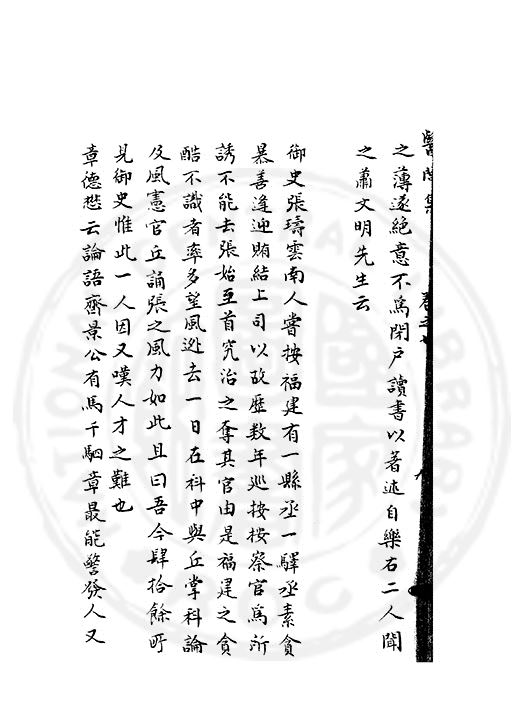 醫閭集
卷
九
之薄遂絕意不爲閉户讀書以著述自樂右二人聞
之蕭文明先生云
御史張璹雲南人嘗按福建有一縣丞一驛丞素貪
暴善逢迎賄結上司以故歷數年廵按按察官爲所
誘不能去張始至首究治之奪其官由是福建之貪
酷不識者率多望風逃去一日在科中與丘掌科論
及風憲官丘誦張之風力如此且曰吾今肆拾餘所
見御史惟此一人因又嘆人才之難也
章德懋云論語齊景公有馬千駟章最能警發人又